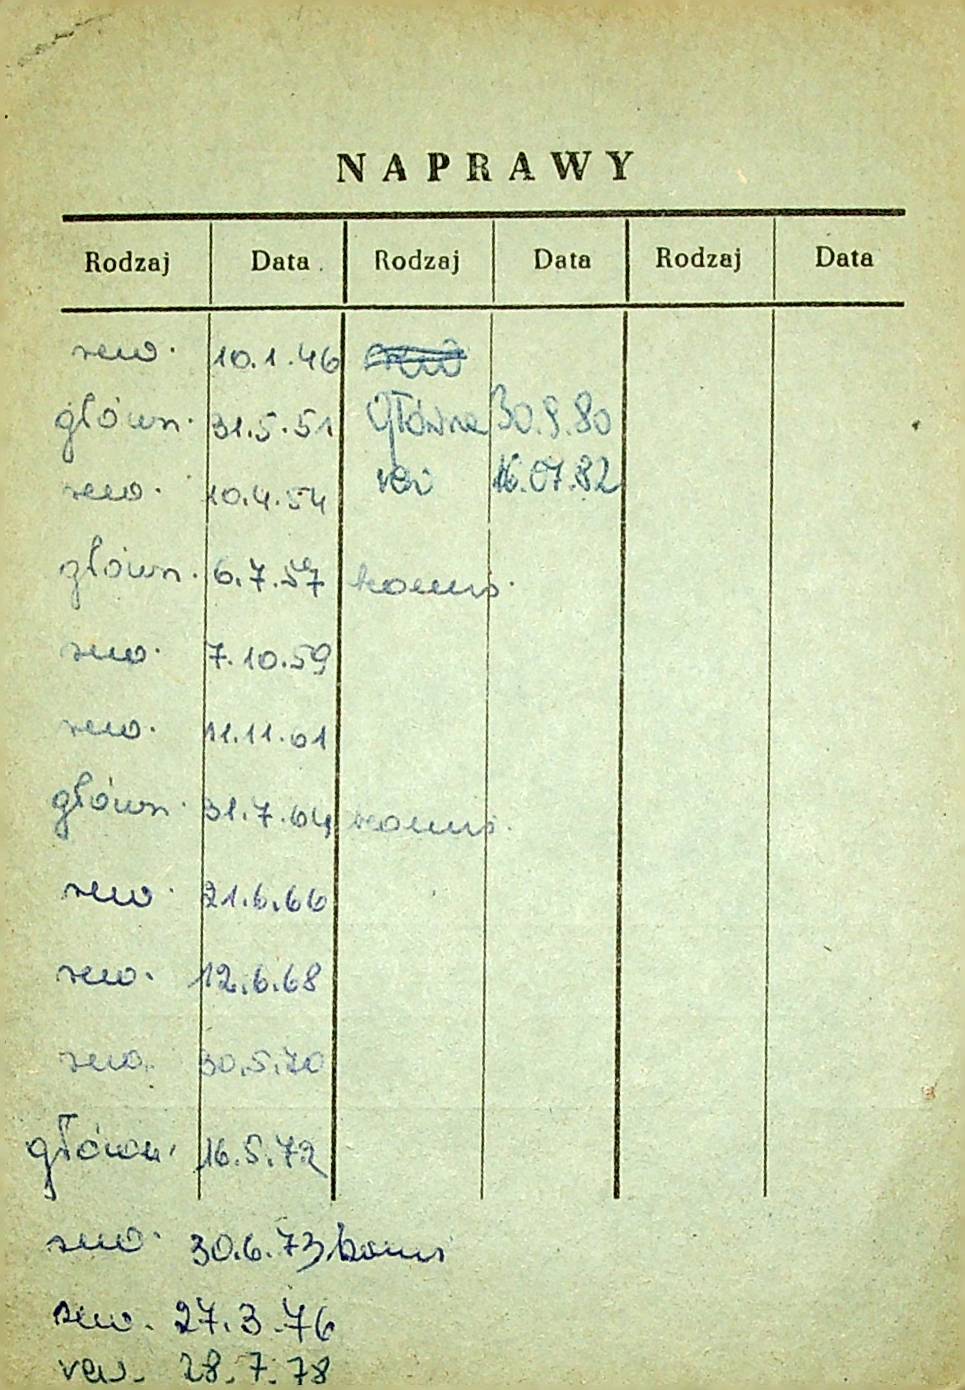 NAPRAWY
Rodzaj Data Rodzaj Data Rodzaj Data
rew. 10.1.46
główn. 31.5.51 Główna 30.9.80
rew. 10.4.54 rew 16.07.82
główn. 6.7.57 komis.
rew. 7.10.59
rew. 11.11.61
główn. 31.7.64 komis.
rew. 21.6.66
rew. 12.6.68
rew. 30.5.70
główn. 16.5.72
rew. 30.6.73 komis
rew. 27.3.76
rew. 28.7.78